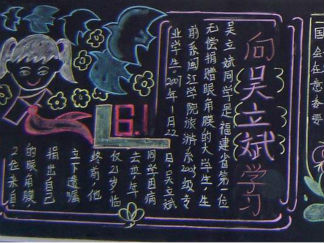 向吴立斌学习
吴立斌同学是福建省第一位
无偿捐赠眼角膜的大学生,生
前系闽江学院旅游系2004级专
业学生。2007年1月22日,吴立斌
同学因病
去世,年
仅21岁。临
终前,他
立下遗嘱
捐出自己
的眼角膜
2位来自
6.1
国
会
在
意
务
要